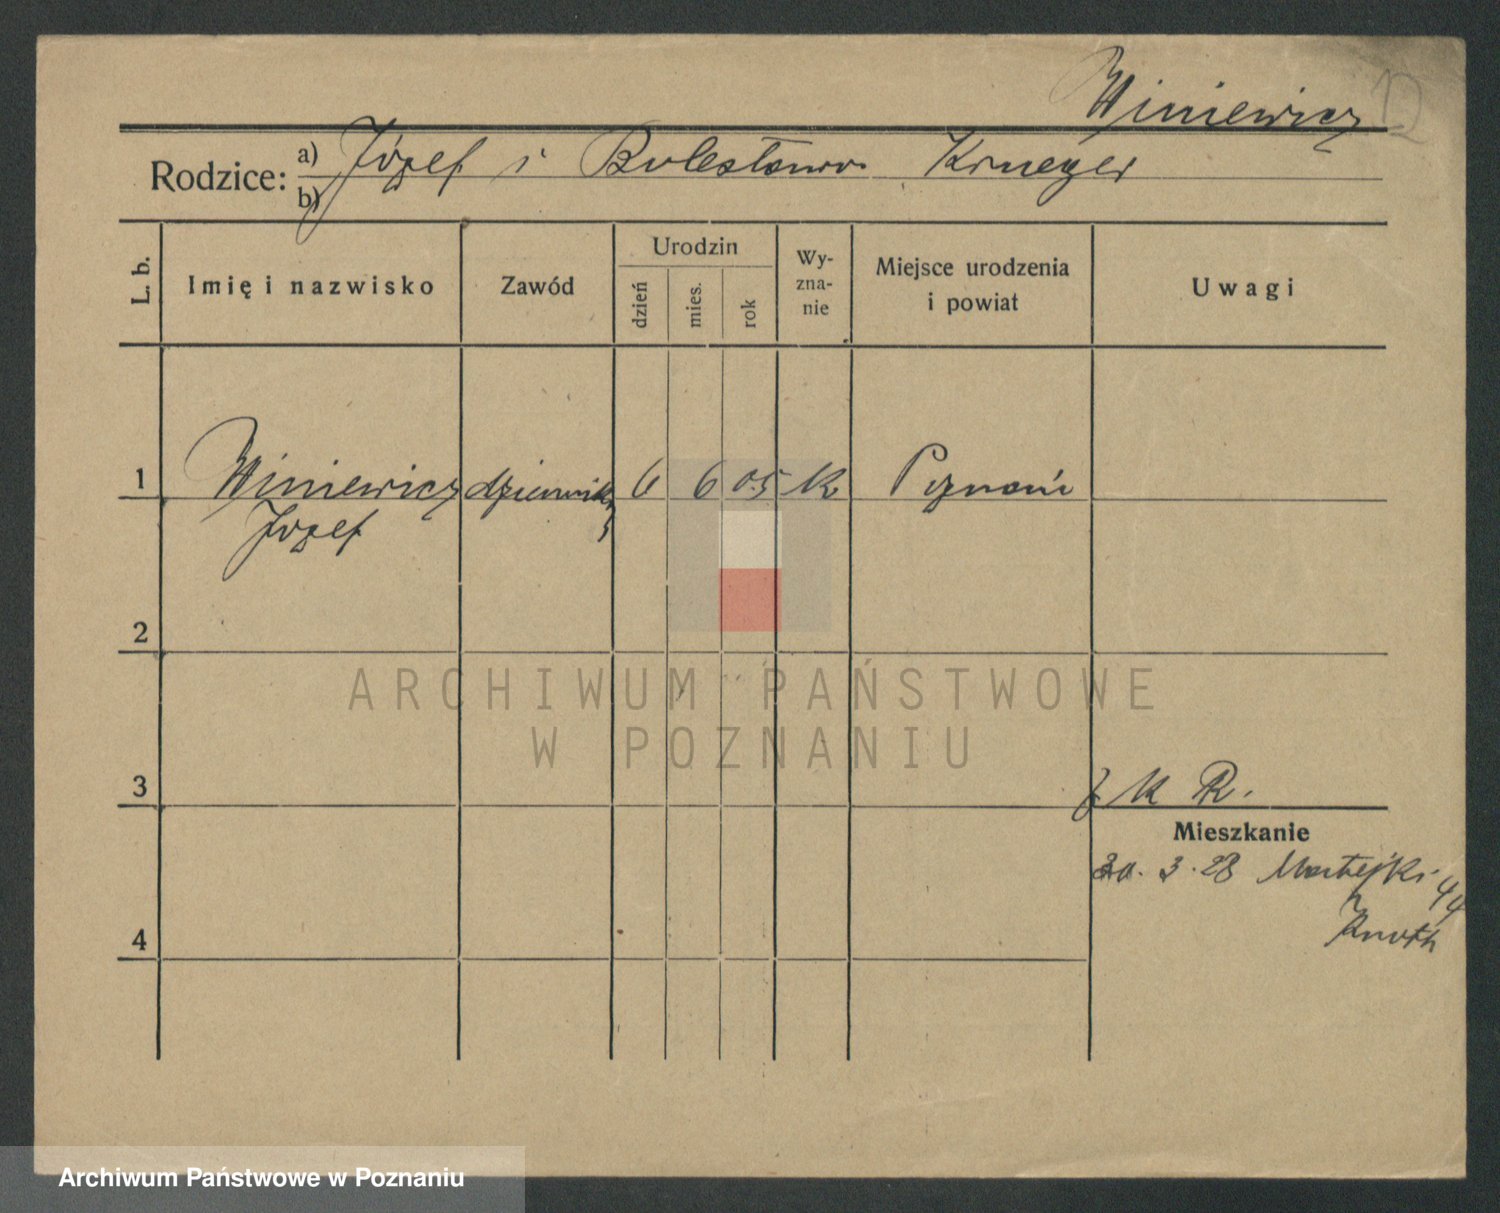 Winiewicz
12
Rodzice: a) Józef i Bolesława Krueger
b)
L. b.
Imię i nazwisko
Zawód
Urodzin
dzień
mies.
rok
Wy-
zna-
nie
Miejsce urodzenia
i powiat
Uwagi
1 Winiewicz dziennik 6 6 05 k Poznań
Józef
2
ARCHIWUM PAŃSTWOWE
W POZNANIU
3
Mieszkanie
3. 28 Matejki 44
Knoth
4
Archiwum Państwowe w Poznaniu